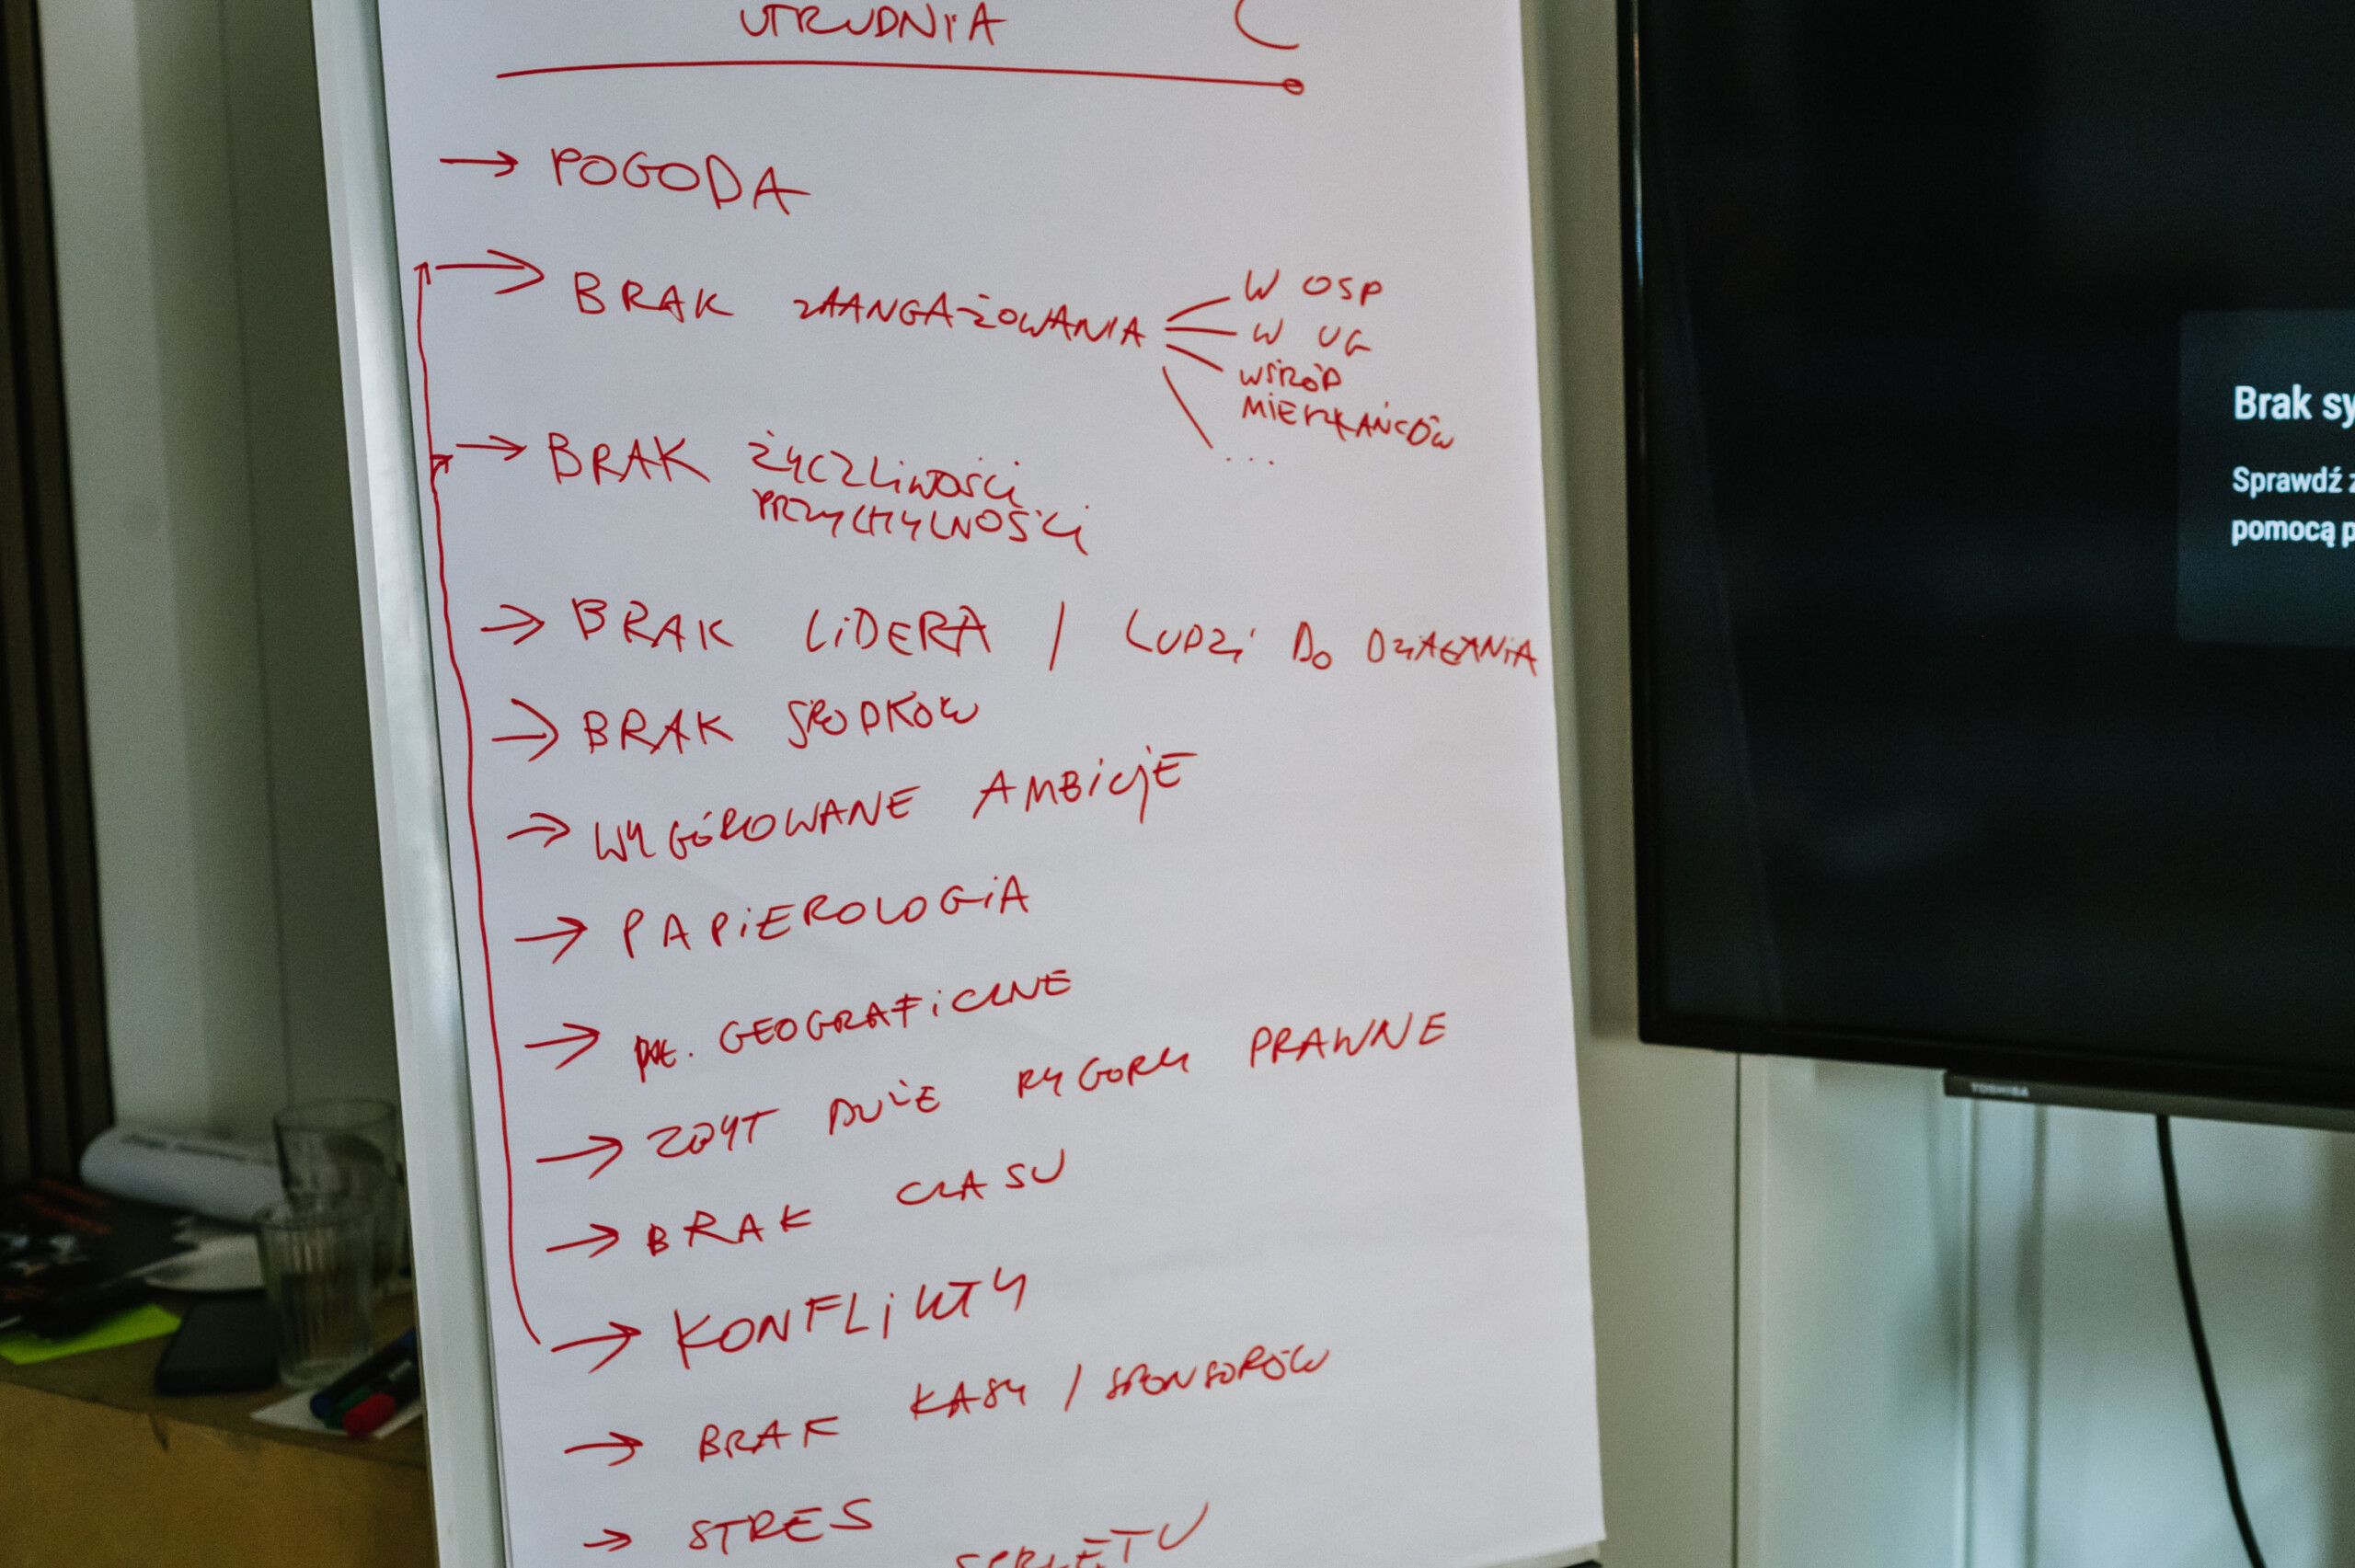 UTRUDNIA
→ POGODA
→ BRAK ZAANGAŻOWANIA
W OSP
W UG
WŚRÓD
MIESZKAŃCÓW
...
→ BRAK ŻYCZLIWOŚCI
PRZYCHYLNOŚCI
→ BRAK LIDERA / LUDZI DO DZIAŁANIA
→ BRAK ŚRODKÓW
→ WYGÓROWANE AMBICJE
→ PAPIEROLOGIA
→ GEOGRAFICZNE
→ ZBYT DUŻE RYGORY PRAWNE
→ BRAK CZASU
→ KONFLIKTY
→ BRAK KASY / SPONSORÓW
→ STRES
SPRZĘTU
Brak sy
Sprawdź z
pomocą p
TOSHIBA